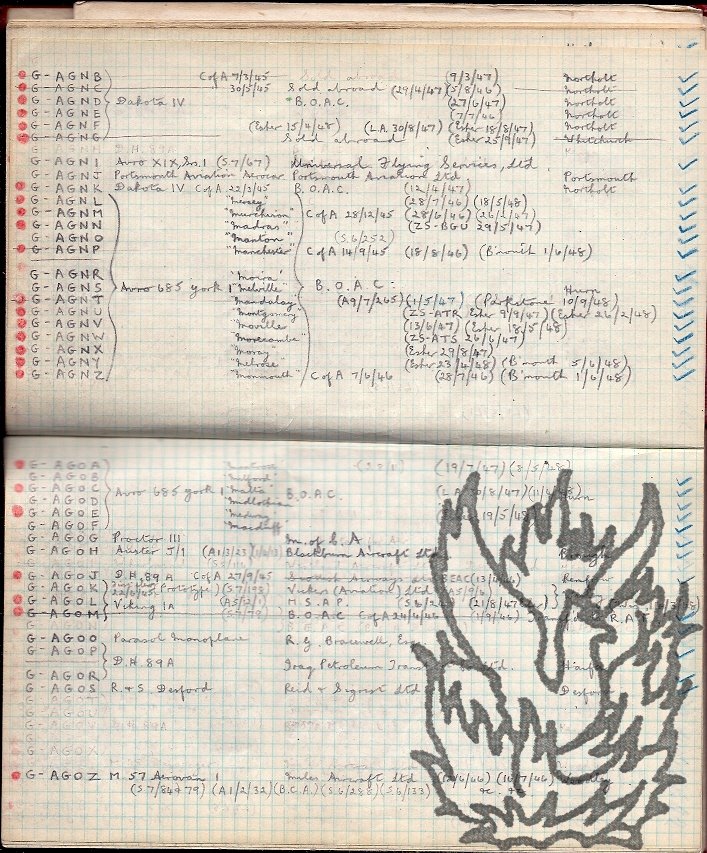 G-AGNB CofA 7/3/45 Sold abroad (9/3/47) Northolt
G-AGNC 30/5/45 Sold abroad (29/4/47) (5/8/46) Northolt
G-AGND Dakota IV B.O.A.C. (27/6/47) Northolt
G-AGNE (7/7/46) Northolt
G-AGNF (Esher 15/4/48) (L.A. 30/8/47) (Esher 18/8/47) Northolt
G-AGNG Sold abroad (Esher 25/9/47) Whitchurch
G-AGNH D.H.89A
G-AGNI Avro XIX, Sr.1 (S7/67) Universal Flying Services, Ltd
G-AGNJ Portsmouth Aviation Aerocar Portsmouth Aviation Ltd Portsmouth
G-AGNK Dakota IV CofA 22/2/45 B.O.A.C. (12/4/47) Northolt
G-AGNL "Mersey" (28/7/46) (18/5/48)
G-AGNM "Murchison" CofA 28/12/45 (28/6/46) (26/2/47)
G-AGNN "Madras" (ZS-BGU 29/5/47)
G-AGNO "Manton" (S.6/252)
G-AGNP "Manchester" CofA 14/9/45 (18/8/46) (B'mouth 1/6/48)
G-AGNR "Moira"
G-AGNS Avro 685 York 1 "Melville" B.O.A.C. Hurn
G-AGNT "Mandalay" (A9/7/265) (1/5/47) (Parkstone 10/9/48)
G-AGNU "Montgomery" (ZS-ATR Esher 9/9/47) (Esher 26/2/48)
G-AGNV "Morville" (13/6/47) (Esher 18/5/48)
G-AGNW "Morecambe" (ZS-ATS 26/6/47)
G-AGNX "Moray" (Esher 29/8/47)
G-AGNY "Melrose" (Esher 23/4/48) (B'mouth 5/6/48)
G-AGNZ "Monmouth" CofA 7/6/46 (28/7/46) (B'mouth 1/6/48)
G-AGOA "Montrose" (19/7/47) (8/5/48)
G-AGOB "Milford"
G-AGOC Avro 685 York 1 "Malta" B.O.A.C. (L.A. 30/8/47)
G-AGOD "Midlothian"
G-AGOE "Medway" 19/5/48
G-AGOF "Macduff"
G-AGOG Proctor III
G-AGOH Auster J/1 (A1/3/23) Blackburn Aircraft Ltd Brough
G-AGOJ D.H.89A CofA 27/9/45 Scottish Airways Ltd BEAC Renfrew
G-AGOK Prototype) (S7/193) Vickers (Aviation) Ltd (A5/9/6)
G-AGOL Viking 1A (A5/2/1) M.S.A.P. (21/8/47
G-AGOM B.O.A.C. CofA 24/4/46 (1/9/46)
G-AGOO Parasol Monoplane R.G. Bracewell, Esq.
G-AGOP
D.H.89A Iraq Petroleum Ltd. Haifa
G-AGOR
G-AGOS R. & S. Desford Reid & Sigrist Ltd Desford
G-AGOX
G-AGOZ M.57 Aerovan 1 Miles Aircraft Ltd (16/7/46) Woodley
(S.7/84+79) (A1/2/32) (B.C.A.) (S.6/288) (S.6/133) &c. &c.